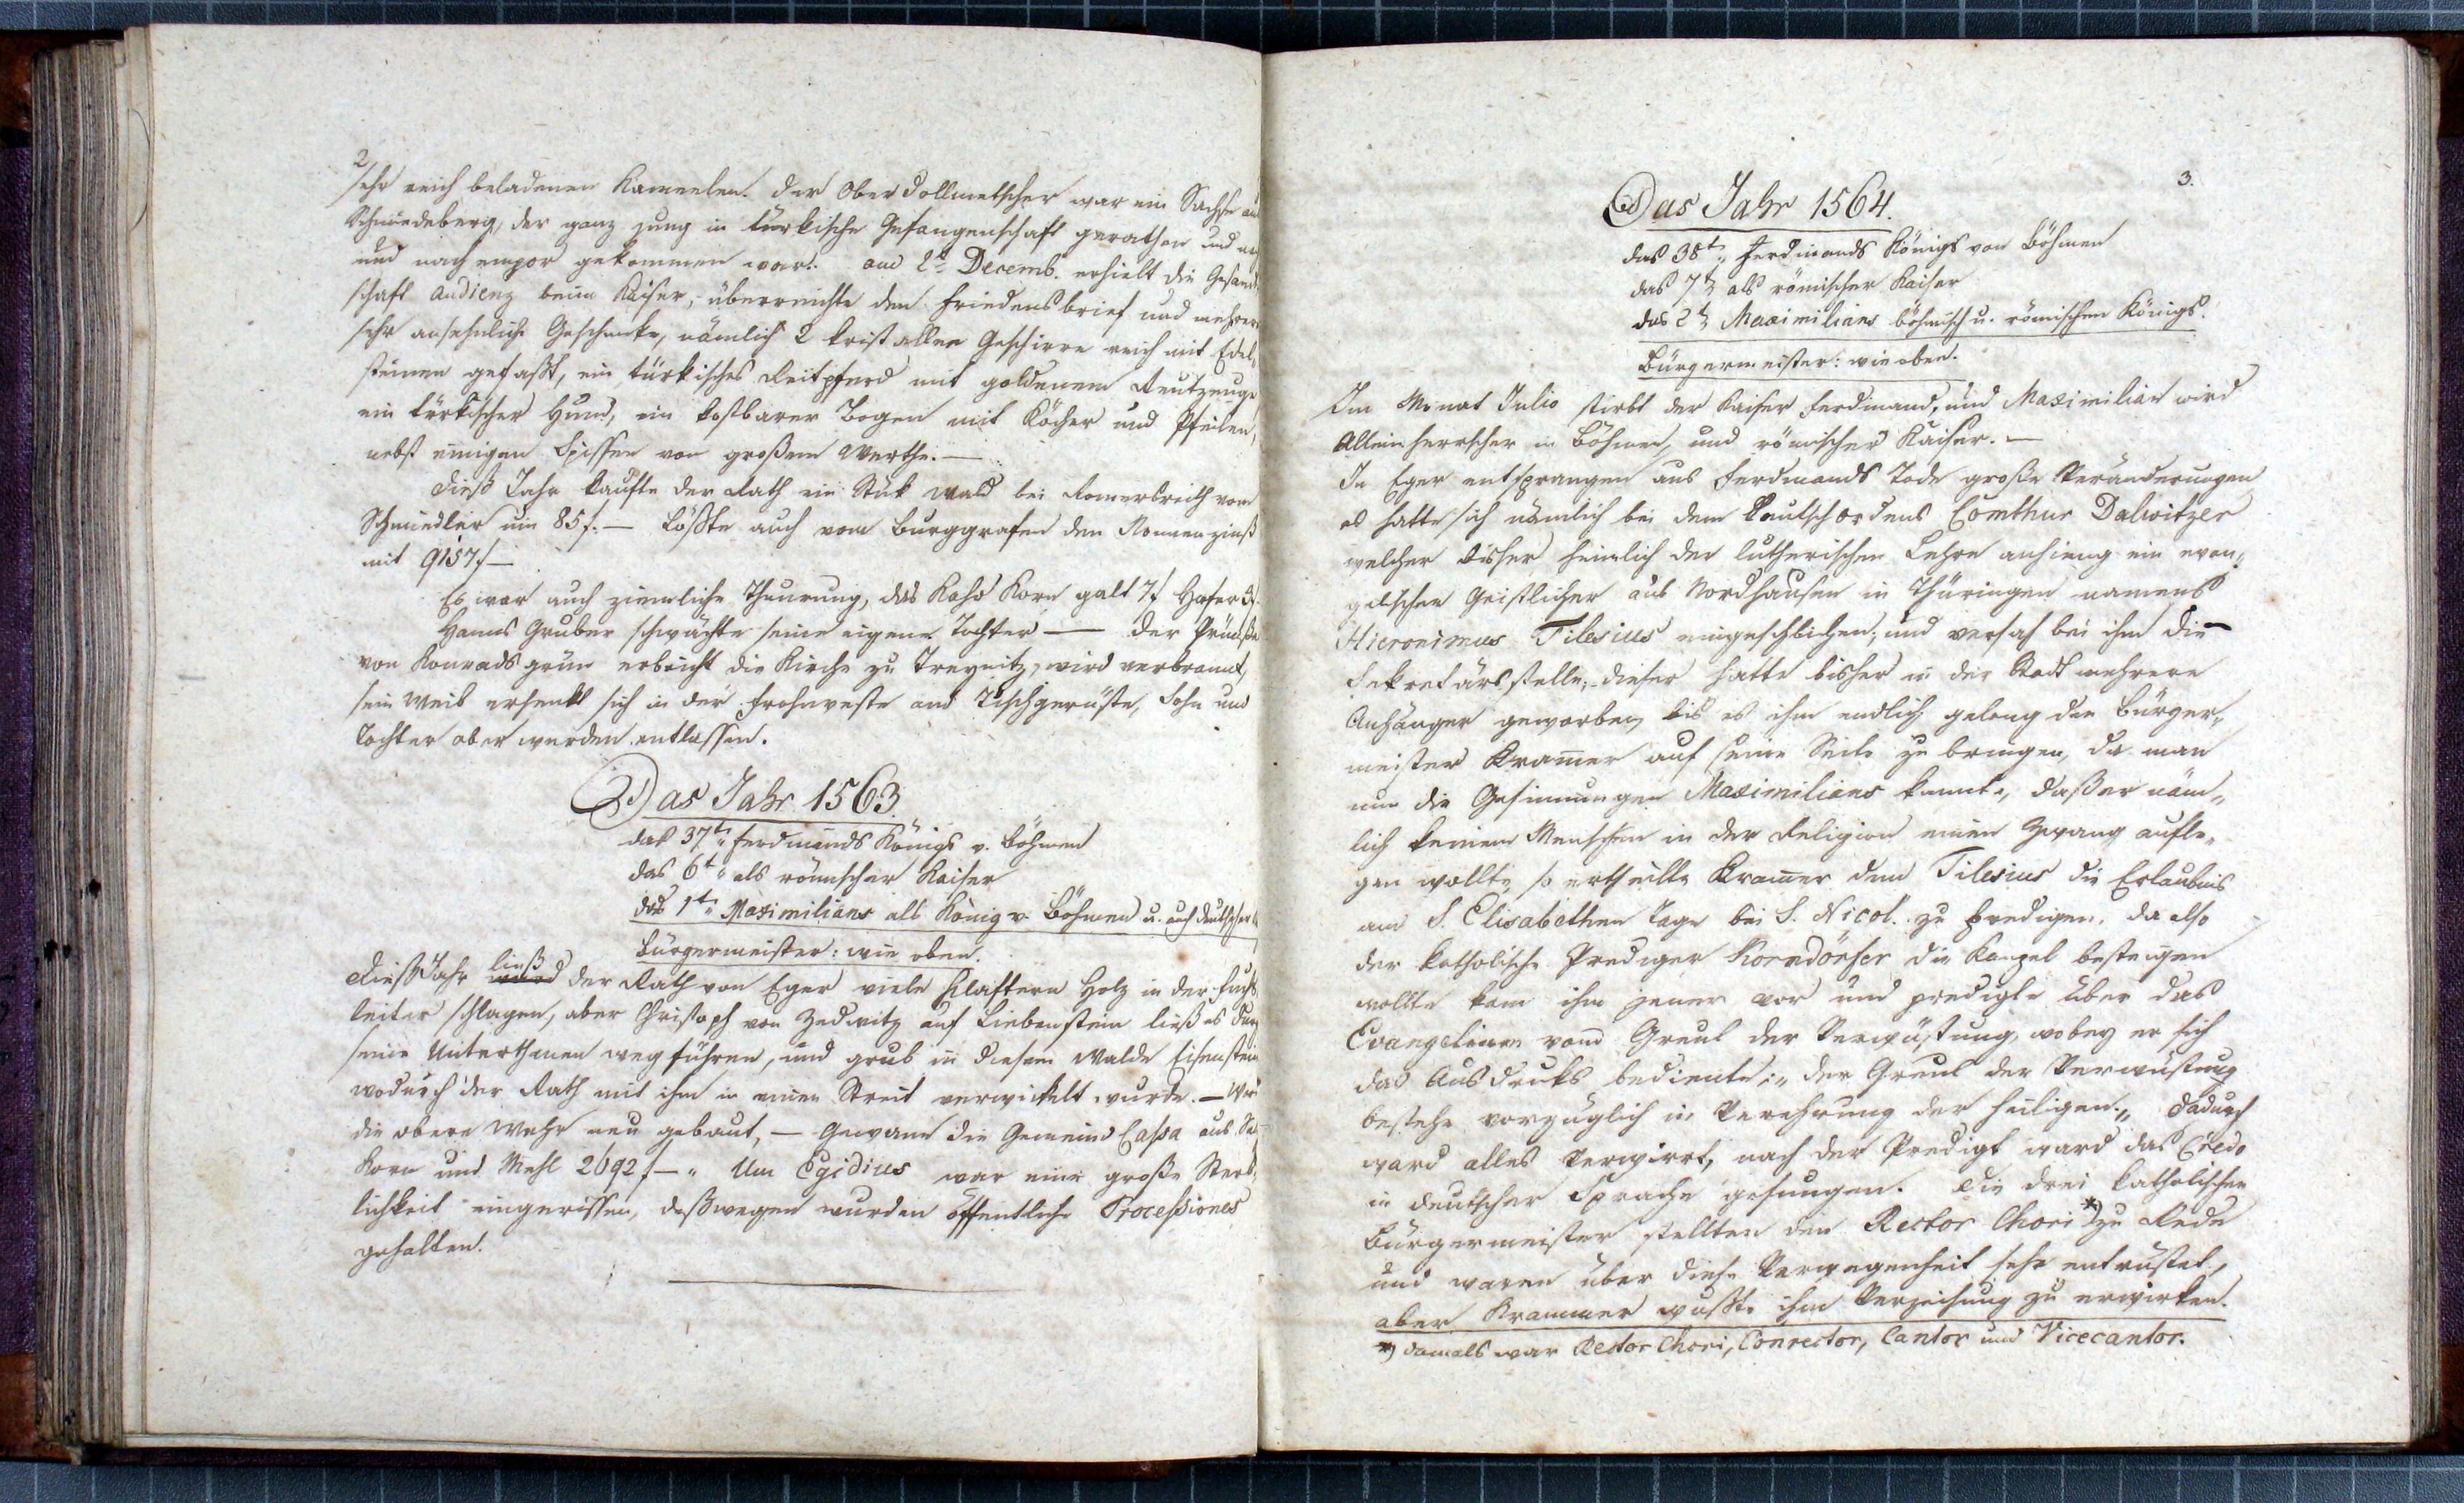 2
sehr reich beladenen Kameelen. Der Oberdollmetscher war ein Sachse aus
Schmiedeberg, der ganz jung in türkische Gefangenschaft gerathen und
und nach empor gekommen war. am 2t. Decemb. erhielt die Gesand-
schaft Audienz beim Kaiser, überreichte den Friedensbrief und mehrere
sehr ansehnliche Geschenke, nämlich 2 kristallne Geschirre reich mit Edel-
steinen gefaßt, ein türkisches Reitpferd mit goldenem Reutzeuge
ein türkischer Hund, ein kostbarer Bogen mit Köcher und Pfeilen,
nebst einigen von großem Werthe. —
Dieß Jahr kaufte der Rath ein Stük Wald bei Romersreith vom
Schmiedler um 85 f. — Lößte auch vom Burggrafen den Nonnenzinß
mit 9157 f —
Es war auch ziemliche Theurung, das Kahr Korn galt 7 f Hafer 3 f.
Hanns Gruber schwächte seine eigene Tochter — Der
von Konradsgrün erbricht die Kirche zu Treynitz, wird verbrannt,
sein Weib erhenkt sich in der Frohnveste am Tischgerüste, Sohn und
Tochter aber wurden entlassen.
Das Jahr 1563.
das 37t. Ferdinands Königs v. Böhmen
das 6t. als römischer Kaiser
das 1t. Maximilians als König v. Böhmen u. auch deutscher
Bürgermeister: wie oben.
Dieß Jahr ließ der Rath von Eger viele Klaftern Holz in der
leiter schlagen, aber Christoph von Zedwitz auf Liebenstein ließ es durch
seine Unterthanen wegführen, und grub in diesem Walde Eisenstein
wodurch der Rath mit ihm in einen Streit verwickelt wurde. —
die obere Wehr neu gebaut, — Gewann die Gemeind Cassa aus
Korn und Mehl 2692 f — " Um Egidius war eine große Sterb-
lichkeit eingerissen, deßwegen wurden öffentliche Processiones
gehalten.
3.
Das Jahr 1564.
das 38t. Ferdinands Königs von Böhmen
das 7t. als römischer Kaiser
das 2t. Maximilians böhmisch u. römischen Königs.
Bürgermeister: wie oben.
Im Monat Julio stirbt der Kaiser Ferdinand, und Maximilian wird
Alleinherrscher in Böhmen, und römischer Kaiser. —
In Eger entsprangen aus Ferdinands Tode große Veränderungen
es hatte sich nämlich bei dem Deutschordens Comthur Dalwitzer
welcher bisher heimlich der lutherischen Lehre anhieng ein evan-
gelischer Geistlicher aus Nordhausen in Thüringen namens
Hieronimus Tilesius eingeschlichen, und versah bei ihm die
Sekretärsstelle; dieser hatte bisher in der Stadt mehrere
Anhänger geworben, bis es ihm endlich gelang den Bürger-
meister Kramer auf seine Seite zu bringen, da man
nun die Gesinnungen Maximilians kannte, daß er näm-
lich keinem Menschen in der Religion einen Zwang aufle-
gen wollte, so ertheilte Kramer dem Tilesius die Erlaubnis
am S. Elisabethen Tage bei S. Nicol. zu predigen. da also
der katholische Prediger Korndörfer die Kanzel besteigen
wollte kam ihm jener vor und predigte über das
Evangelium vom Greul der Verwüstung, wobey er sich
das Ausdruks bediente: „ der Greul der Verwüstung
bestehe vorzüglich in Verehrung der Heiligen. „ Dadurch
ward alles verwirrt, nach der Predigt ward das Credo
in deutscher Sprache gesungen. Die drei katholischen
Bürgermeister stellten den Rector Chori *) zu Rede
und waren über diese Verwegenheit sehr entrüstet,
aber Krammer wußte ihm Verzeihung zu erwirken.
*) damals war Rector Chori, Conrector, Cantor und Vicecantor.